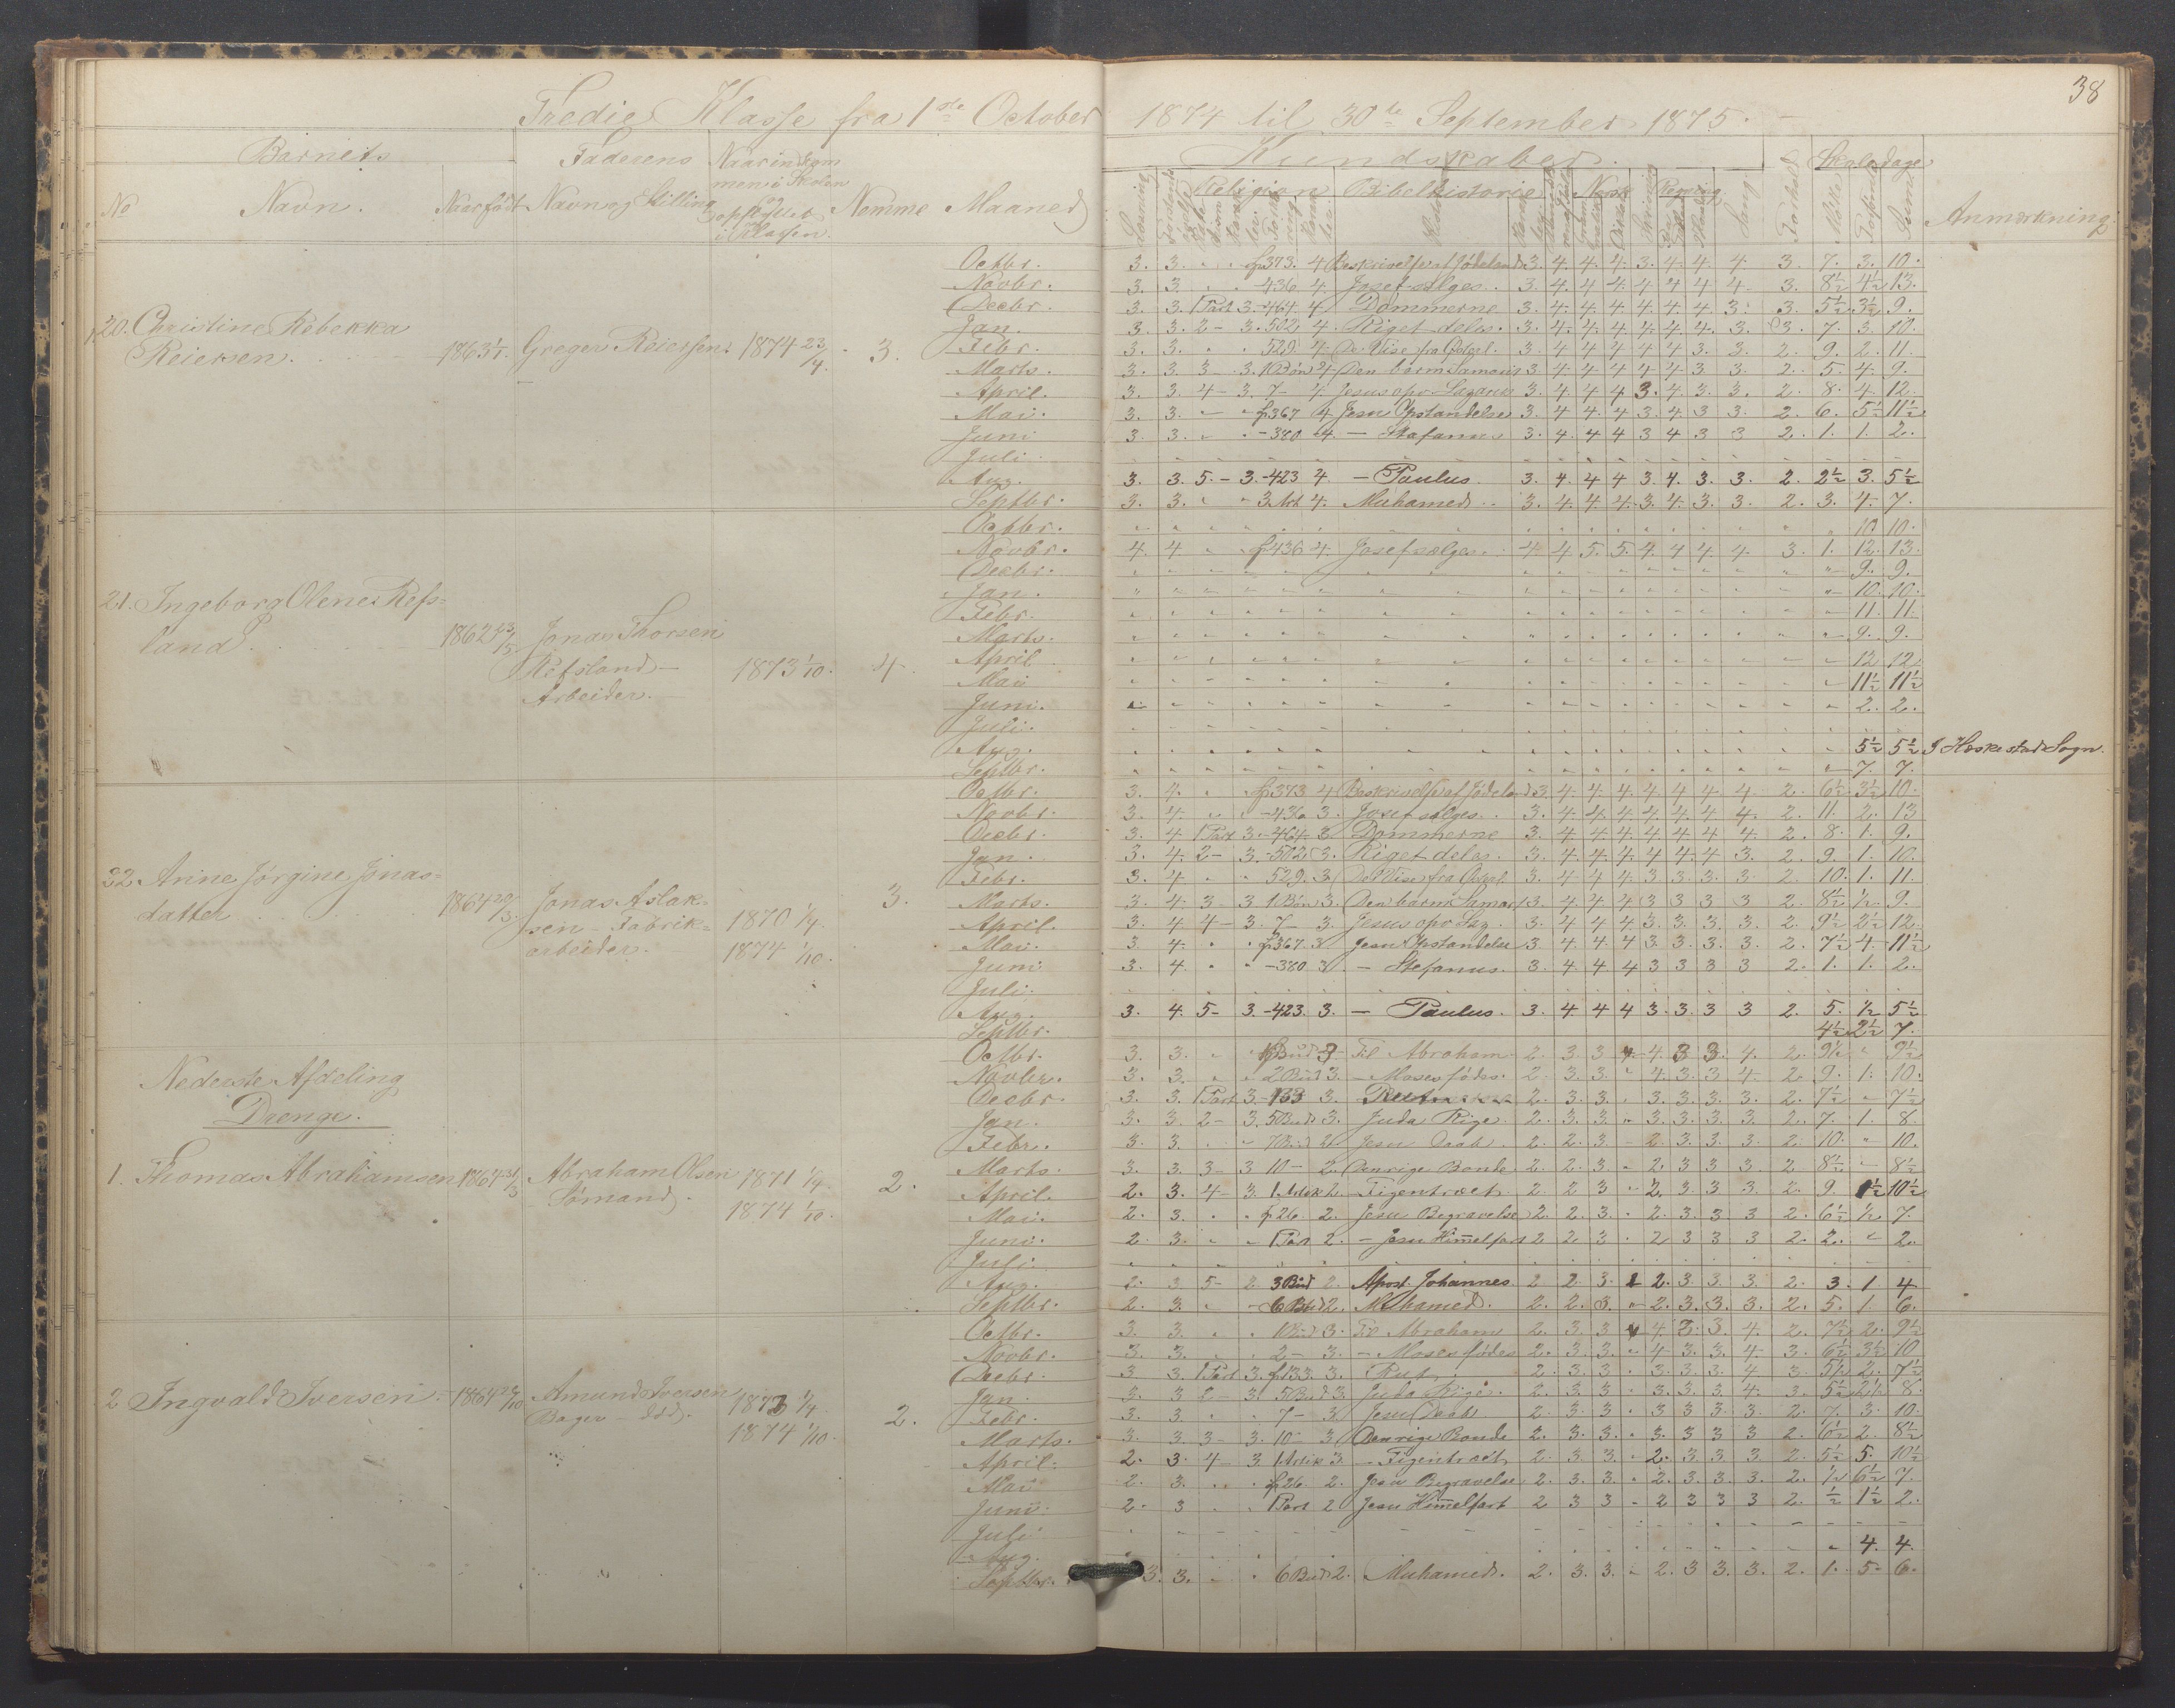 38
Tredie Klasse fra 1ste October 1874 til 30te September 1875.
Barnets Faderens Naar indkommen i Skolen og opflyttet i Klassen. Nemme Maaned Kundskaber. Forhold Skoledage Anmærkning.
No Navn. Naar født Navn og Stilling Religion Bibelhistorie Norsk Regning Sang. Møtte Forsømte Sum
20. Christine Rebekka
Reiersen. 1863 Greger Reiersen. 1874 23/4. 3.
Octbr. 3. 3. " " fr 373. 4 Beskrivelse af Jødeland 3. 4. 4. 4. 3. 4. 4. 4. 3. 7. 3. 10.
Novbr. 3. 3. " " - 436 4. Josef sælges. 3. 4. 4. 4. 4. 4. 4. 4. 3. 8½ 4½ 13.
Decbr. 3. 3. 1 Part 3. - 464. 4 Dommerne 3. 4. 4. 4. 4. 4. 4. 3. 3. 5½ 3½ 9.
Jan. 3. 3. 2 - 3. 502 4. Riget deles. 3. 4. 4. 4. 4. 4. 4. 3. 3. 7. 3. 10.
Febr. 3. 3. " " 529. 4. De Vise fra Østerl. 3. 4. 4. 4. 4. 4. 3. 3. 2. 9. 2. 11.
Marts. 3. 3. 3 - 3. 1 Bøn 4. Den barm. Samarit 3. 4. 4. 4. 4. 4. 3. 3. 2. 5. 4. 9.
April. 3. 3. 4 - 3. 7 - 4. Jesus opv. Lazarus 3. 4. 4. 4. 3. 4. 3. 3. 2. 8. 4. 12.
Mai. 3. 3. " " fr 367 4. Jesu Opstandelse 3. 4. 4. 4. 3. 4. 3. 3. 2. 6. 5½ 11½
Juni 3. 3. " " - 380 4. - Stefanus 3. 4. 4. 4. 3. 4. 3. 3. 2. 1. 1. 2.
Juli.
Aug. 3. 3. 5. - 3. - 423 4. - Paulus. 3. 4. 4. 4. 3. 4. 3. 3. 2. 2½ 3. 5½
Septbr. 3. 3. " " 3. Art 4. Muhamed. 3. 4. 4. 4. 3. 4. 3. 3. 2. 3. 4. 7.
21. Ingeborg Olene Refs=
land. 1862 23/5 Jonas Thorsen
Refsland -
Arbeider. 1873 1/10. 4.
Octbr. 10. 10.
Novbr. 4. 4. " " fr 436 4. Josef sælges. 4. 4. 5. 5. 4. 4. 4. 4. 3. 1. 12. 13.
Decbr. 9. 9.
Jan. 10. 10.
Febr. 11. 11.
Marts. 9. 9.
April 12. 12.
Mai 11½ 11½
Juni. 2. 2.
Juli.
Aug. 5½ 5½ I Heskestad Sogn.
Septbr. 7. 7.
22. Anne Jørgine Jonas=
datter 1864 20/3. Jonas Aslak=
sen - Fabrik=
arbeider. 1870 1/4
1874 1/10. 3.
Octbr. 3. 4. " " fr 373 4 Beskrivelse af Jødeland 3. 4. 4. 4. 4. 4. 4. 4. 2. 6½ 3½ 10.
Novbr. 3. 4. " " - 436 3. Josef sælges. 3. 4. 4. 4. 4. 4. 4. 4. 2. 11. 2. 13
Decbr. 3. 4. 1 Part 3. - 464. 3 Dommerne 3. 4. 4. 4. 4. 4. 4. 4. 2. 8. 1. 9.
Jan. 3. 4. 2 - 3. - 502 3. Riget deles. 3. 4. 4. 4. 4. 4. 4. 3. 2. 9. 1. 10.
Febr. 3. 4. " " 529. 3. De Vise fra Østerl. 3. 4. 4. 4. 3. 3. 3. 3. 2. 10. 1. 11.
Marts. 3. 4. 3 - 3 1 Bøn 3. Den barm. Samar. 3. 4. 4. 4. 3 3 3 3 2. 8½ ½ 9.
April. 3. 4. 4 - 3. 7 - 3. Jesus opv. Laz. 3. 4. 4. 4. 3. 3. 3. 3. 2. 9½ 2½ 12.
Mai. 3. 4. " " fr 367. 3 Jesu Opstandelse 3. 4. 4. 4. 3. 3. 3. 3. 2. 7½ 4. 11½
Juni 3. 4. " " - 380 3 - Stefanus. 3. 4. 4. 4. 3 3 3 3 2. 1. 1. 2.
Juli.
Aug. 3. 4. 5 - 3. - 423. 3. - Paulus. 3. 4 4 4 3. 3. 3 3 2. 5. ½ 5½
Septbr. 4½ 2½ 7.
Nederste Afdeling
Drenge.
1. Thomas Abrahamsen 1864 31/3 Abraham Olsen
Sømand. 1871 1/4
1874 1/10. 2.
Octbr. 3. 3. " " 1 Bud 3 Til Abraham 2. 3. 3 " 4. 3 3. 4. 2. 9½ " 9½
Novbr. 3. 3. " " 2 Bud 3. - Moses fødes. 2. 3. 3. " 4. 3. 3 4. 2. 9. 1. 10.
Decbr. 3. 3. 1 Part 3. 133 3. Rut 2. 3. 3. " 3. 3. 3. 3. 2. 7½ " 7½
Jan. 3. 3. 2 - 3. 5 Bud 3. Juda Rige 2. 3. 3. " 3. 3. 3. 3. 2. 7. 1. 8.
Febr. 3. 3. " " 7 Bud 2. Jesu Daab. 2. 2. 3. - 2. 3. 3. 3. 2. 10. " 10.
Marts. 3. 3. 3 - 3 10 - 2. Den rige Bonde 2. 2. 3. - 2. 3 3 3. 2 8½ - 8½
April. 2. 3. 4 - 3. 1 Artik 2. - Figentræet. 2. 2 3 - 2. 3. 3. 3. 2. 9. 1½ 10½
Mai. 2. 3. " " fr 26. 2. Jesu Begravelse 2. 2. 3. " 2. 3. 3. 3 2. 6½ ½ 7.
Juni. 2. 3. " " 1 Part 2. - Jesu Himmelfart 2 2 3 " 2 3 3 3 2. 2. " 2.
Juli.
Aug. 2. 3. 5 - 2 3 Bud 2. Apost. Johannes. 2 2. 3. 2. 3. 3 3. 2. 3. 1. 4.
Septbr. 2. 3. " - 6 Bud 2. Muhamed. 2. 2. 3. " 2. 3. 3. 3. 2. 5. 1. 6.
2 Ingvald Iversen. - 1864 /10 Amund Iversen
Bager - død. 1873 1/4
1874 1/10. 2.
Octbr. 3. 3. " " 1 Bud 3. Til Abraham 2. 3. 3 4. 3. 3. 4. 2. 7½ 2. 9½
Novbr. 3. 3. " " 2 - 3. - Moses fødes 2. 3. 3. " 4 3. 3. 4 3. 6½ 3½ 10
Decbr. 3. 3. 1 Part 3. fr 133 3. Rut 2. 3. 3. " 3. 3. 3. 4 3. 5½ 2. 7½
Jan. 3. 3. 2 - 3. 5 Bud 3. Juda Rige. 2. 3. 3 " 3. 3. 3. 4. 3. 5½ 2½ 8.
Febr. 3. 3. " " 7 - 3. Jesu Daab 2. 3. 3. " 3 3 3. 3. 2. 7. 3. 10.
Marts. 3. 3. 3 - 3. 10 - 3 Den rige Bonde 2. 3. 3. " 3. 3 3 3 2. 6½ 2. 8½
April. 2. 3. 4 - 3. 1 Artik 3. - Figentræet, 2. 3. 3. " 2. 3. 3 3 2. 5½ 5. 10½
Mai 2. 3. " " fr 26. 2. Jesu Begravelse 2. 3. 3. " 2. 3. 3. 3. 2. ½ 6½ 7.
Juni. 2. 3 " " 1 Part 2 Jesu Himmelfart 2 3 3 - 2 3 3 3 2. ½ 1½ 2.
Juli
Aug. 4. 4.
Septbr. 3. 3. " " 6 Bud 2. Muhamed. 2. 3. 3. " 2. 3 3. 3. 2. 1. 5. 6.